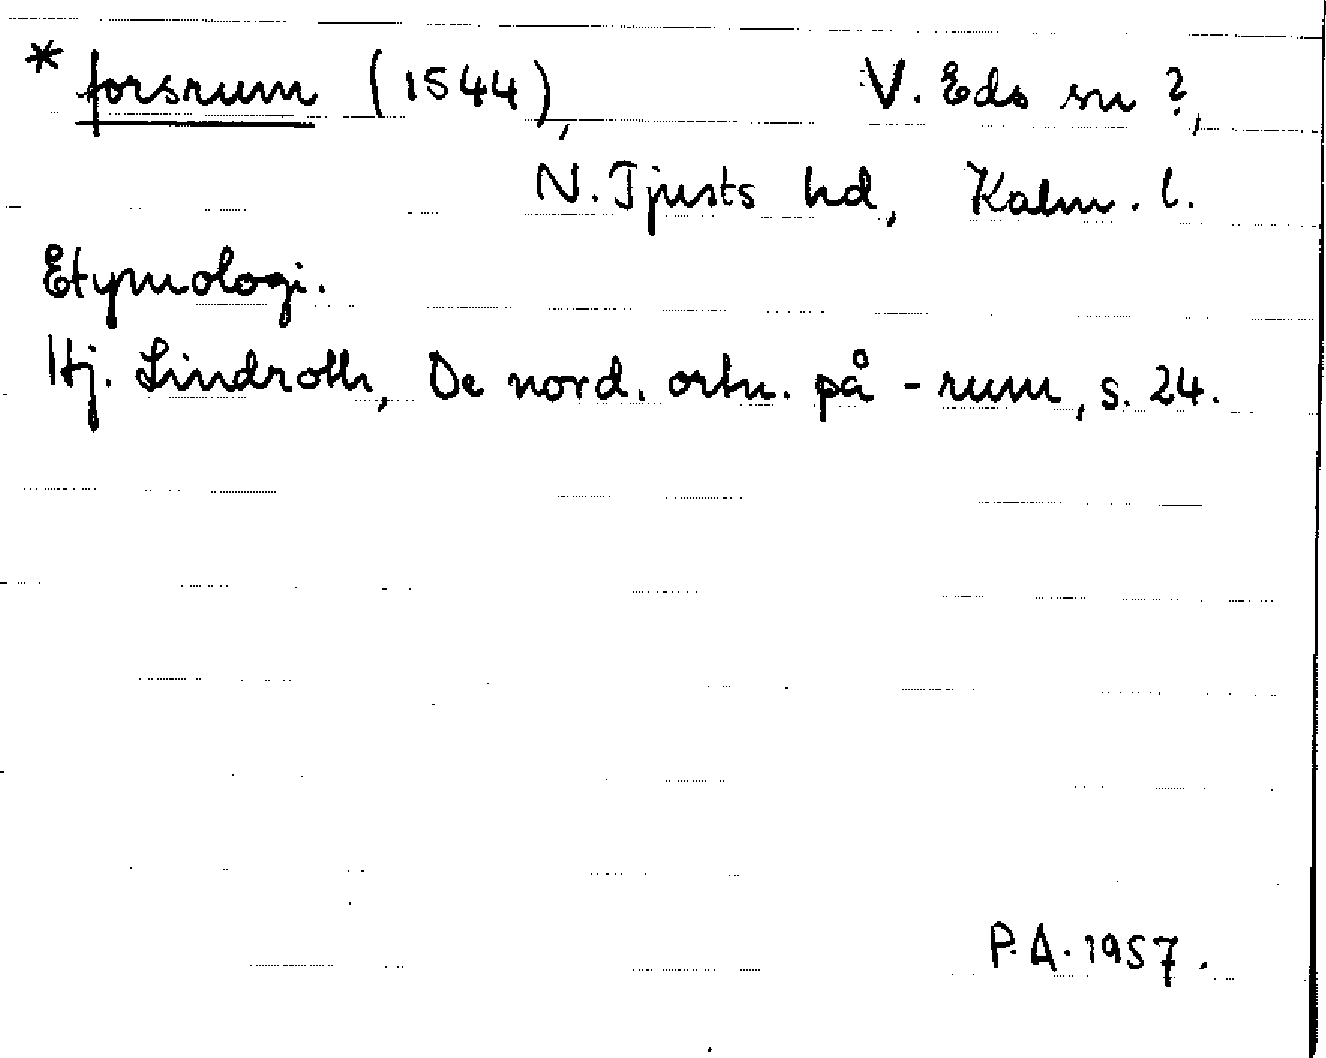 * forsrum (1544), V. Eds sn ?,
N. Tjusts hd, Kalm. l.
Etymologi.
Hj. Lindroth, De nord. ortn. på -rum, s. 24.
P.A. 1957.